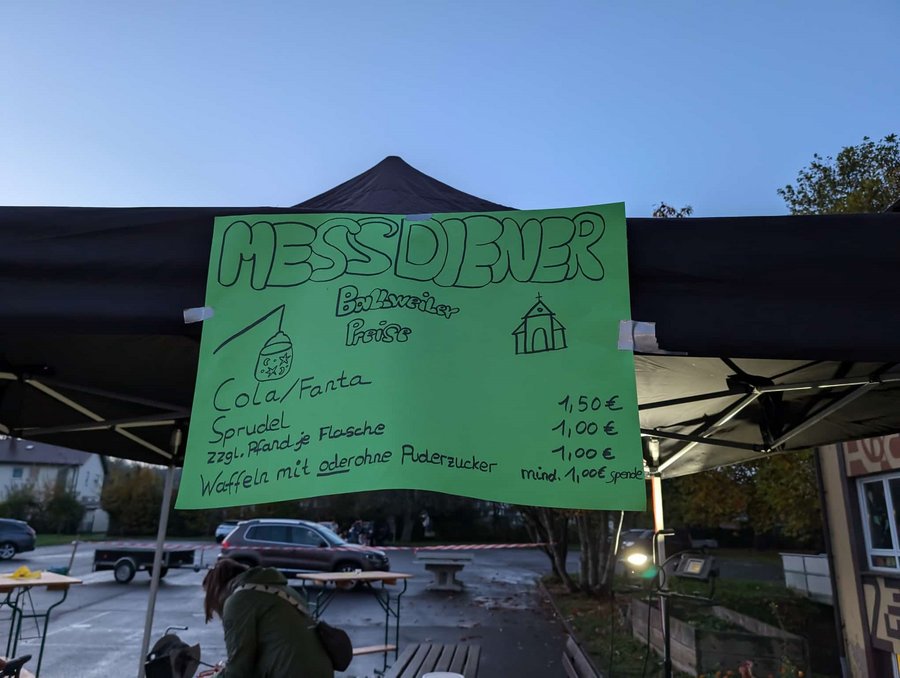 MESSDIENER
Ballweiler
Preise
Cola/Fanta 1,50 €
Sprudel 1,00 €
zzgl. Pfand je Flasche 1,00 €
Waffeln mit oder ohne Puderzucker mind. 1,00 € spende